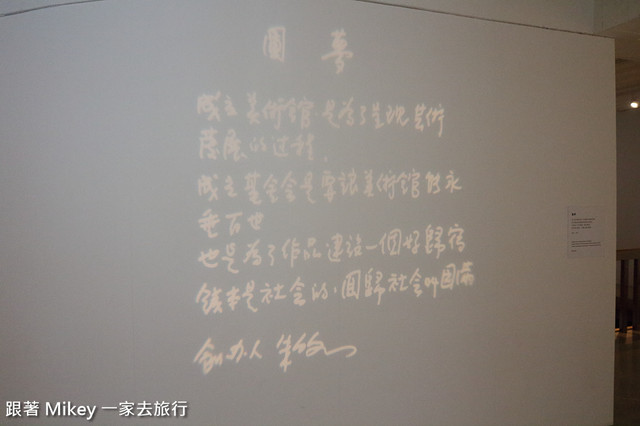 圓夢
成立美術館，是為了呈現芸術
發展的过程，
成立基金会是要讓美術館能永
垂百世
也是為了作品建設一個好歸宿
錢本是社会的，圓歸社会叫圓滿
創办人 朱銘
跟著 Mikey 一家去旅行